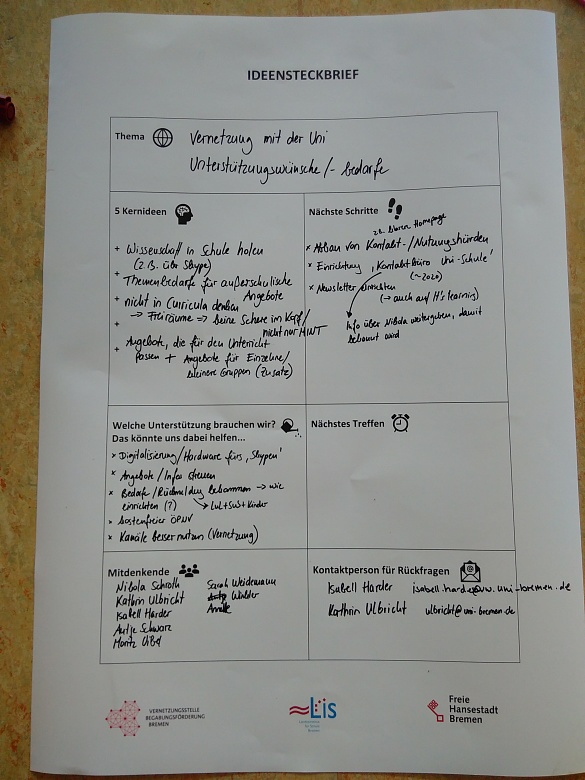 IDEENSTECKBRIEF
Thema
Vernetzung mit der Uni
Unterstützungswünsche/-bedarfe
5 Kernideen
+ Wissenschaft in Schule holen
(z.B. über Skype)
+ Themenbedarfe für außerschulische
Angebote
+ nicht in Curricula denken
→ Freiräume → keine Schere im Kopf/
+ nicht nur MINT
+ Angebote, die für den Unterricht
passen + Angebote für Einzelne/
kleinere Gruppen (Zusatz)
Nächste Schritte
z.B. klaren Homepage
x Abbau von Kontakt-/Nutzungshürden
x Einrichtung "Kontaktbüro Uni-Schule"
(~2020)
x Newsletter einrichten
(→ auch auf It's learning)
Info über Nibola weitergeben, damit
bekannt wird
Welche Unterstützung brauchen wir?
Das könnte uns dabei helfen...
x Digitalisierung/Hardware fürs "Skypen"
x Angebote/Infos streuen
x Bedarfe/Rückmeldung bekommen → wie
einrichten (?) → LuL+SuS+Kinder
x kostenfreier ÖPNV
x Kanäle besser nutzen (Vernetzung)
Nächstes Treffen
Mitdenkende
Nibola Schroth
Kathrin Ulbricht
Isabell Harder
Antje Schwarz
Moritz
Sarah Weidemann
Kontaktperson für Rückfragen
Isabell Harder isabell.harder@vw.uni-bremen.de
Kathrin Ulbricht ulbricht@uni-bremen.de
VERNETZUNGSSTELLE
BEGABUNGSFÖRDERUNG
BREMEN
LiS
Freie
Hansestadt
Bremen